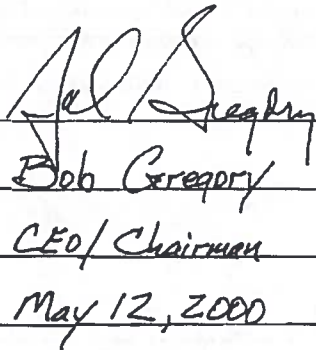 Gregory
Bob Gregory
CEO/Chairman
May 12, 2000